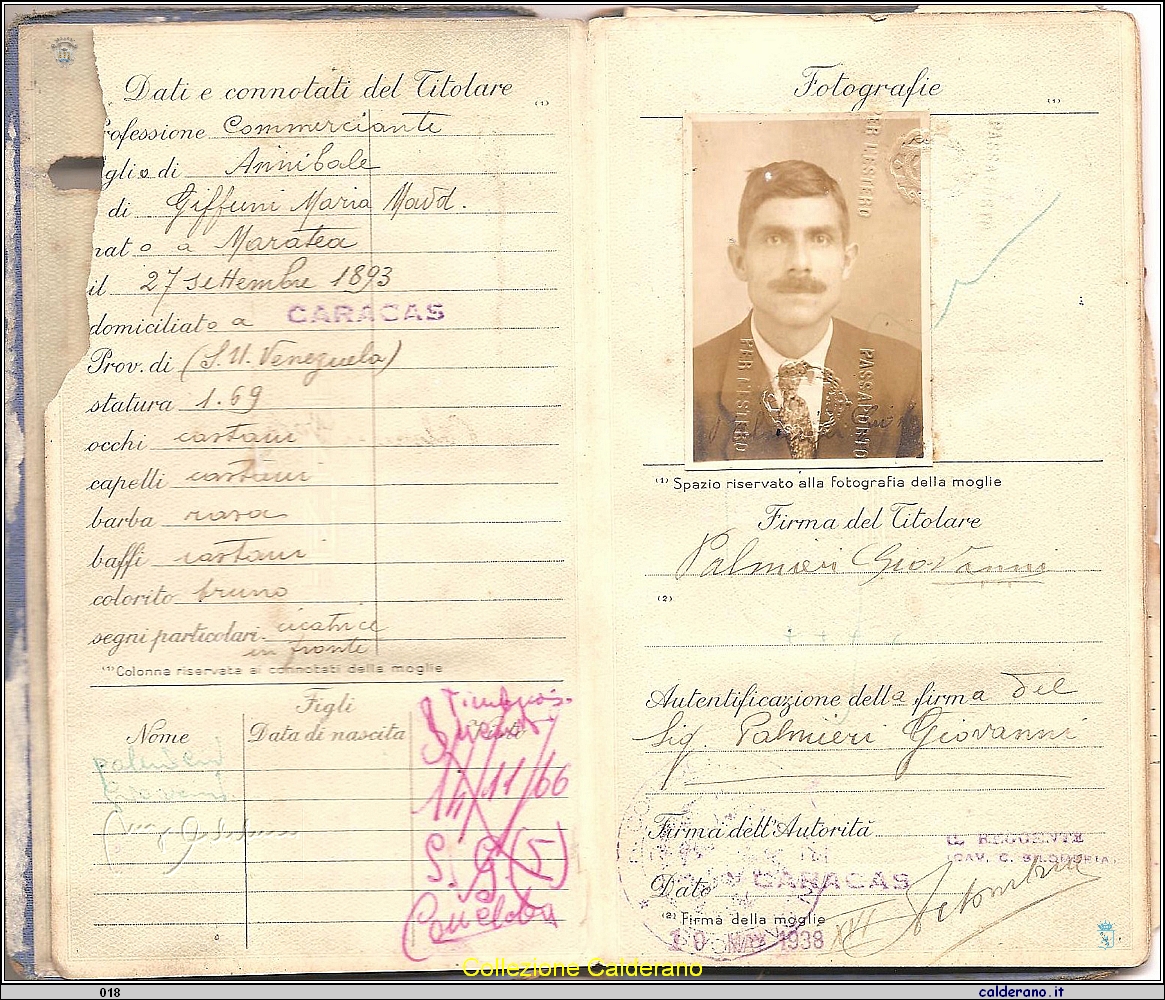 Dati e connotati del Titolare
(1)
rofessione Commerciante
glio di Annibale
di Giffuni Maria Madd.
nato a Maratea
il 27 settembre 1893
domiciliato a CARACAS
Prov. di (S.U. Venezuela)
statura 1.69
occhi castani
capelli castani
barba rasa
baffi castani
colorito bruno
segni particolari cicatrice
in fronte
(1) Colonna riservata ai connotati della moglie
Figli
Nome Data di nascita
14/11/66
S. G. (5)
Palmieri
Fotografie
(1)
PER L'ESTERO
PASSAPORTO
PER L'ESTERO
PASSAPORTO
(1) Spazio riservato alla fotografia della moglie
Firma del Titolare
Palmieri Giovanni
(2)
Autentificazione della firma del
Sig. Palmieri Giovanni
Firma dell'Autorità
IL REGGENTE
Data CARACAS
(2) Firma della moglie
10 MAY 1938 XVI
Collezione Calderano
018
calderano.it